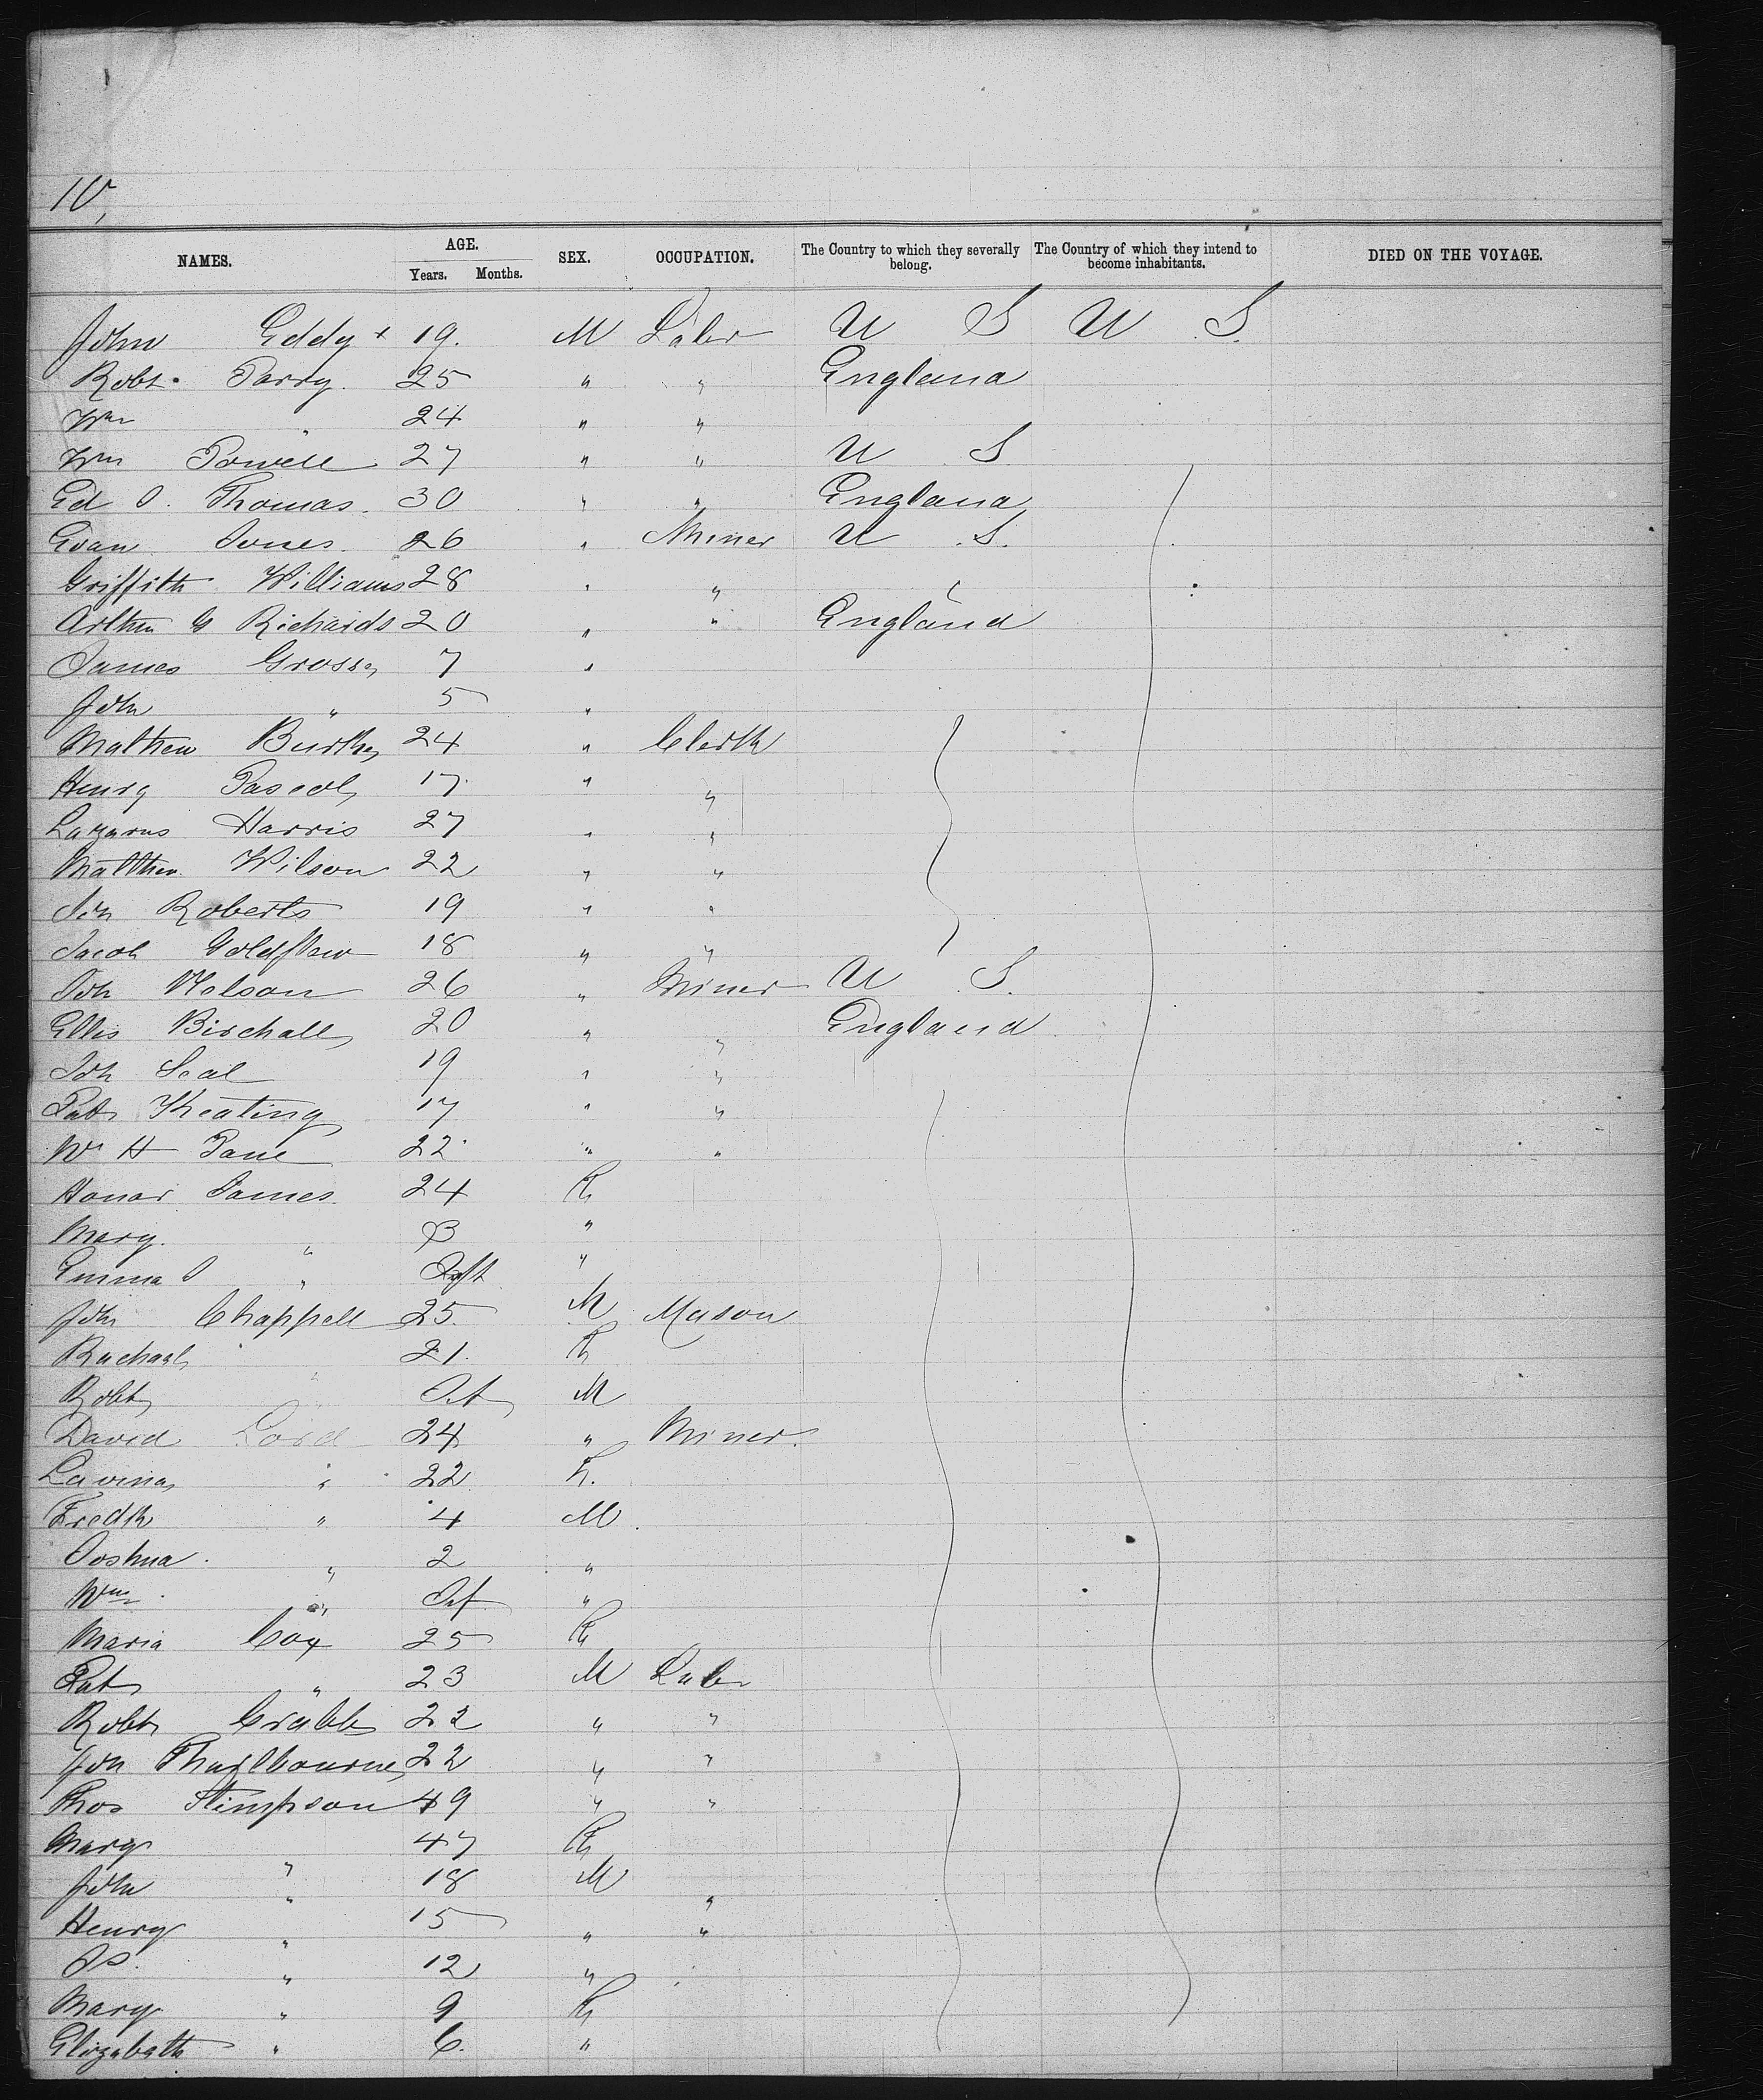 10,
NAMES. AGE. Years. Months. SEX. OCCUPATION. The Country to which they severally belong. The Country of which they intend to become inhabitants. DIED ON THE VOYAGE.
John Eddy + 19. M Labr U S U S.
Robt. Parry. 25 " " England
Wm " 24 " "
Wm Powell 27 " " U S
Ed J. Thomas. 30 " " England
Evan Jones. 26 " Miner U S.
Griffith Williams 28 " "
Arthur G Richards 20 " " England
James Gross 7 "
John " 5 "
Mathew 24 " Clerk
Henry 17 " "
Lazarus Harris 27 " "
Matthew Wilson 22 " "
Jn Roberts 19 " "
Jacob 18 " "
Joh Nelson 26 " Miner U S.
Ellis Birchall 20 " " England
Joh Seal 19 " "
Pat Keating 17 " "
Wm H Pane 22 " "
Honor James. 24 F
Mary. " "
Emma J " Inft "
John Chappell 25 M Mason
Rachael " 21. F
Robt " Inf M
David Lord 24 " Miner.
Lavina " 22 F.
Fredk " 4 M
Joshua " 2 "
Wm " Inf "
Maria Cox 25 F
Pat " 23 M Labr
Robt Crabb 22 " "
Jon Thurlbourne 22 " "
Thos Stimpson 49 " "
Mary " 47 F
John " 18 M "
Henry " 15 " "
Js. " 12 "
Mary " 9 F
Elizabeth " 6. "